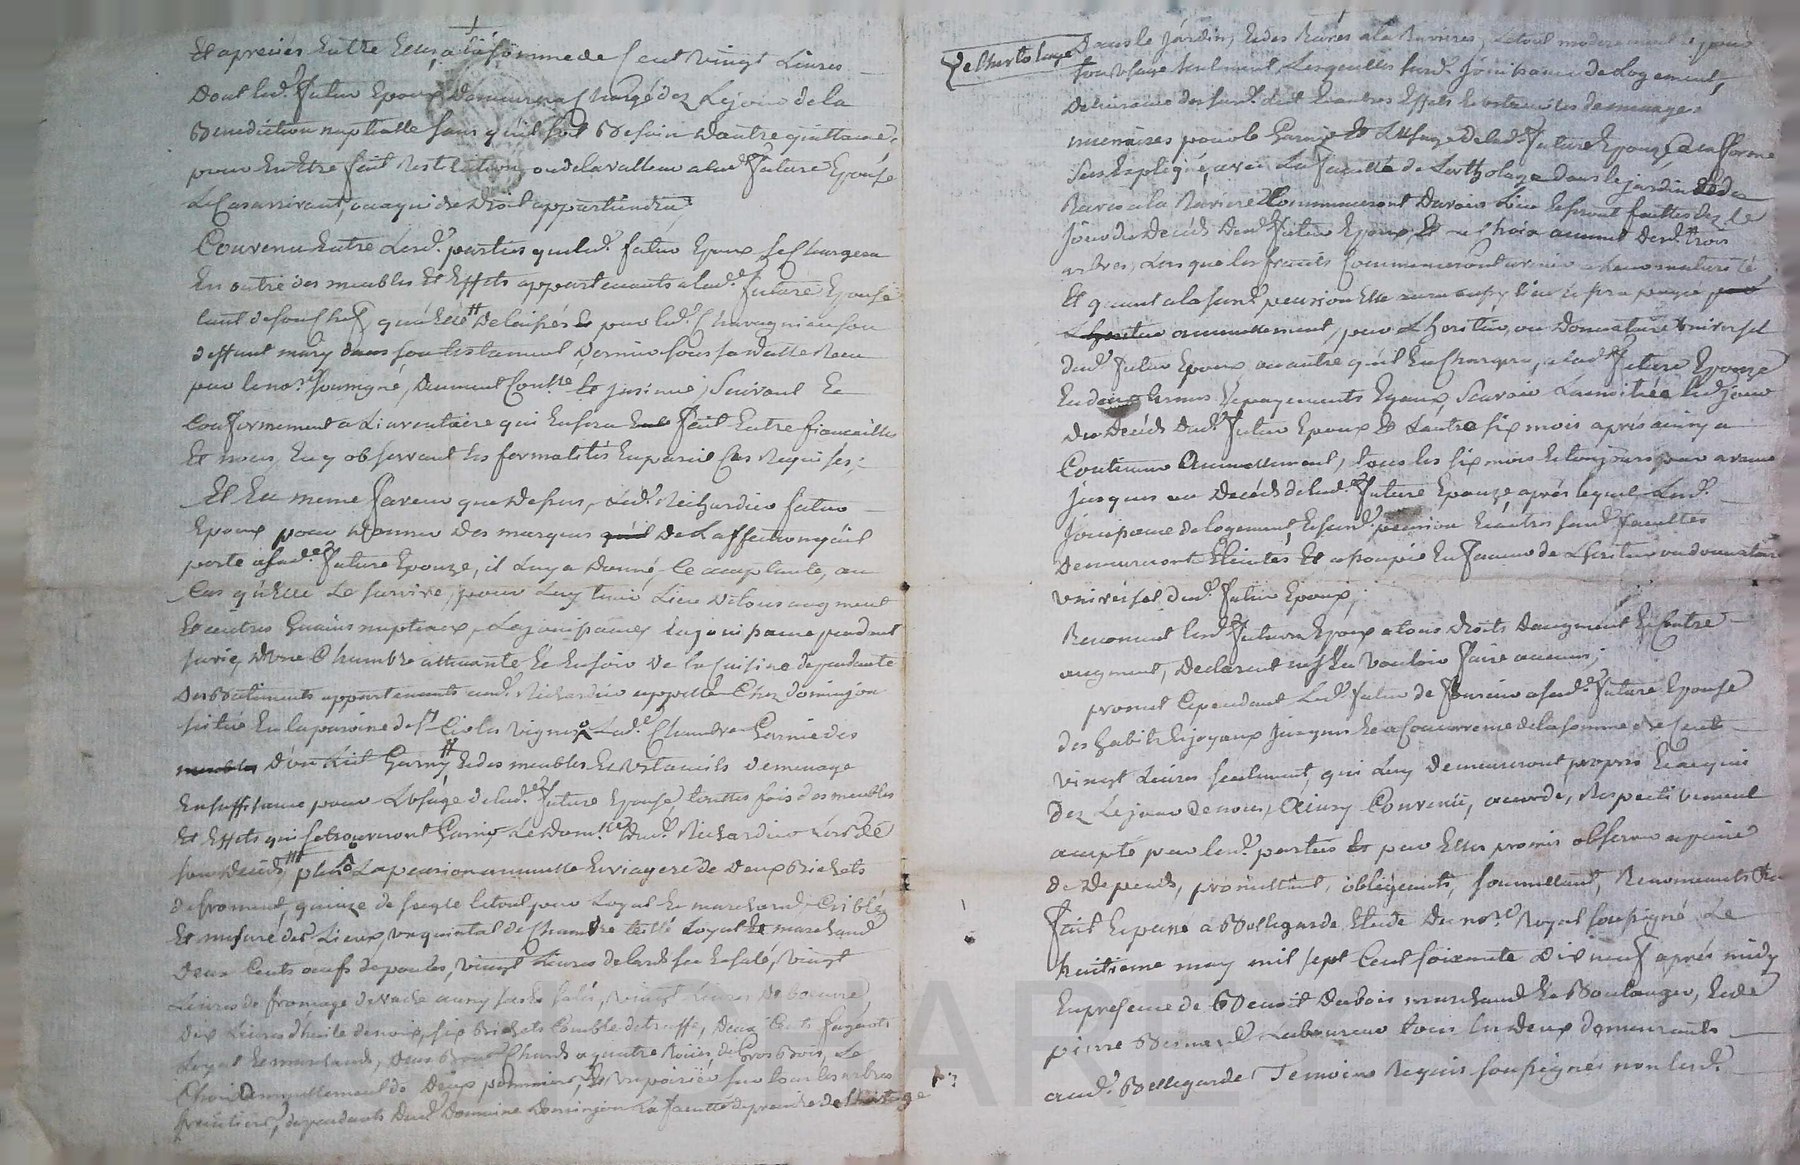 Et apreciés Entre Eux, a la somme de Cent vingt Livres
Dont led. futur Epoux Demeurera Chargé dez Le jour de la
Benediction nuptialle sans qu'il soit Besoin d'autre quittance,
pour En Etre fait Restitution ou de la valleur a lad. future Epouse
Le Cas arrivant, ou a qui de Droit appartiendra
Convenu Entre Lesd. parties que led. futur Epoux se Chargera
En outre des meubles Et Effets appartenants a lad. future Epouse
tant de son Chef, que de Delaissés pour led. Chavagnieu son
deffunt mary dans son testament Dernier sous sa datte Recu
par le no.re soussigné, Duement Con.llé et jnsinué, Suivant Et
Conformement a L'inventaire qui En sera fait Entre fiancailles
Et noces, En y observant les formalités En pareil Cas Requises;
Et En meme faveur que Dessus, led. Richardier futur
Epoux pour Donner Des marques qu'il De L'affection qu'il
porte a sad. future Epouze, il Luy a Donné Ce acceptante, au
Cas qu'Elle Le survive, pour Luy tenir Lieu De tous augment
Et autres Gains nuptiaux, La jouissance pendant
sa vie, D'Une Chambre attenante Et En soir De la Cuisine dependante
Des Batiments appartenants aud. Richardier appellé Chez Dominjon
situé En la paroisse de St Cir les vignes, Lad. Chambre Garnie des
meubles D'un Lit Garny, Et des meubles Et Ustancils De menage
En suffisance pour L'Usage de lad. future Epouse, touttes fois des meubles
Et Effets qui se trouveront Garnir Le Dom.lle Dud. Richardier Lors de
son Deceds, plus La pension annuelle Et viagere de Deux Bichets
de froment, quinze de seigle Le tout pur Loyal Et marchand Criblé
Et mesure desd. Lieux, un quintal de Chanvre teillé Loyal Et marchand
Deux Cents oeufs de poules, vingt Livres de lard sec Et salé, vingt
Livres de fromage de vache aussy secs Et salés, vingt Livres De beurre,
Dix Livres d'huile de noix, six Bichets Comble de truffe, Deux Cents fagots
Loyal Et marchands, Deux Chards a quatre Roües, de Gros Bois, Le
Choix annuellement de Deux pommiers, Et Un poirier sur tous les arbres
fruitiers, dependants Dud. Domaine Dominjon La faculté de prendre de L'hertolage
De L'hertolage Dans le jardin, Et des Raves a la Raviere, Le tout moderement Et pour
son Usage seulement Lesquelles susd. Jouissance de Logement,
Delivrance des susd. lit Et autres Effets Et Ustancils de menage
necessaires pour le Garnir Et L'Usage De lad. future Epouze En la forme
sus Expliqué, avec La faculté de L'ortholage dans le jardin Et de
Raves a la Raviere Commenceront D'avoir Lieu Et seront faittes dez le
jour du Deceds Dud. futur Epoux, Et Le Choix annuel Desd. trois
arbres, Lors que les fruits Commenceront a venir a Leur maturité,
Et quant a la susd. pension Elle aura aussy Lieu Et sera payée
annuellement, par L'heritier, ou Donnataire Universel
dud. futur Epoux ou autre qu'il En Chargera, a lad. future Epouze
En deux termes Et payements Egaux Scavoir La moitié Led. jour
Du Deceds Dud. futur Epoux Et L'autre six mois aprés ainsy a
Continuer Annuellement, tous les six mois Et toujours par avance
jusques au Deceds de lad. future Epouze, aprés lequel Lesd.
Jouissance de logement, Et susd. pension Et autres susd. facultes
Demeureront Eteintes Et assoupie En faveur de L'heritier ou donnataire
Universel dud. futur Epoux;
Renoncent Lesd. futurs Epoux a tous Droits D'augment Et Contre
augment, Declarent n'En Vouloir faire aucuns;
promet Cependant Led. futur de fournir a sad. future Epouse
des habits Et joyaux Jusques Et a Concurrence de la somme de Cent
vingt Livres seulement, qui Luy demeureront propres Et acquis
Dez Le jour de noces, Ainsy Convenu, accordé, Respectivement
accepté par lesd. parties Et par Elles promis observer a peine
de Depends, promettant, obligeants, soumettant, Renonceants &a
Fait Et passé a Bellegarde, Etude Du no.re Royal soussigné Le
huitieme may mil sept Cent soixante Dix neuf aprés midy
En presence de Benoit Dubois marchand Et Boulanger, Et de
pierre Bernard Laboureur tous Les deux demeurants
aud. Bellegarde Temoins Requis soussignés non lesd.